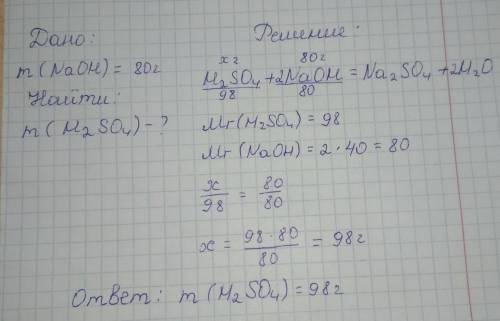 Дано:
m(NaOH) = 80г
Найти:
m(H₂SO₄)-?
Решение:
xг 80г
H₂SO₄ + 2NaOH = Na₂SO₄ + 2H₂O
98 80
Mr(H₂SO₄) = 98
Mr(NaOH) = 2·40 = 80
x/98 = 80/80
x = 98·80/80 = 98г
Ответ: m(H₂SO₄) = 98г